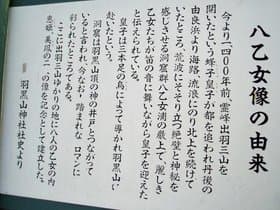 八乙女像の由来
今より一四〇〇年前、霊峰出羽三山を
開いたという蜂子皇子が都を追われ丹後の
由良浜より海路、流浪にのり北上を続けて
いたところ、荒波にそそり立つ絶壁と神秘を
感じさせる洞窟群八乙女浦の巌上で、麗しき
乙女たちが笛の音に舞いながら皇子を迎えた
と伝えられている。
皇子は三本足の烏によって導かれ羽黒山に
赴いたという。
洞窟は羽黒山頂の神の井戸とつながって
いると言われ、今なお、踏まれな ロマンに
れたところである。
ここに出羽三山ゆかりの地に八人の乙女の内
恵姫、美凰の二つの像を記念として建立した。
羽黒山神社社史より